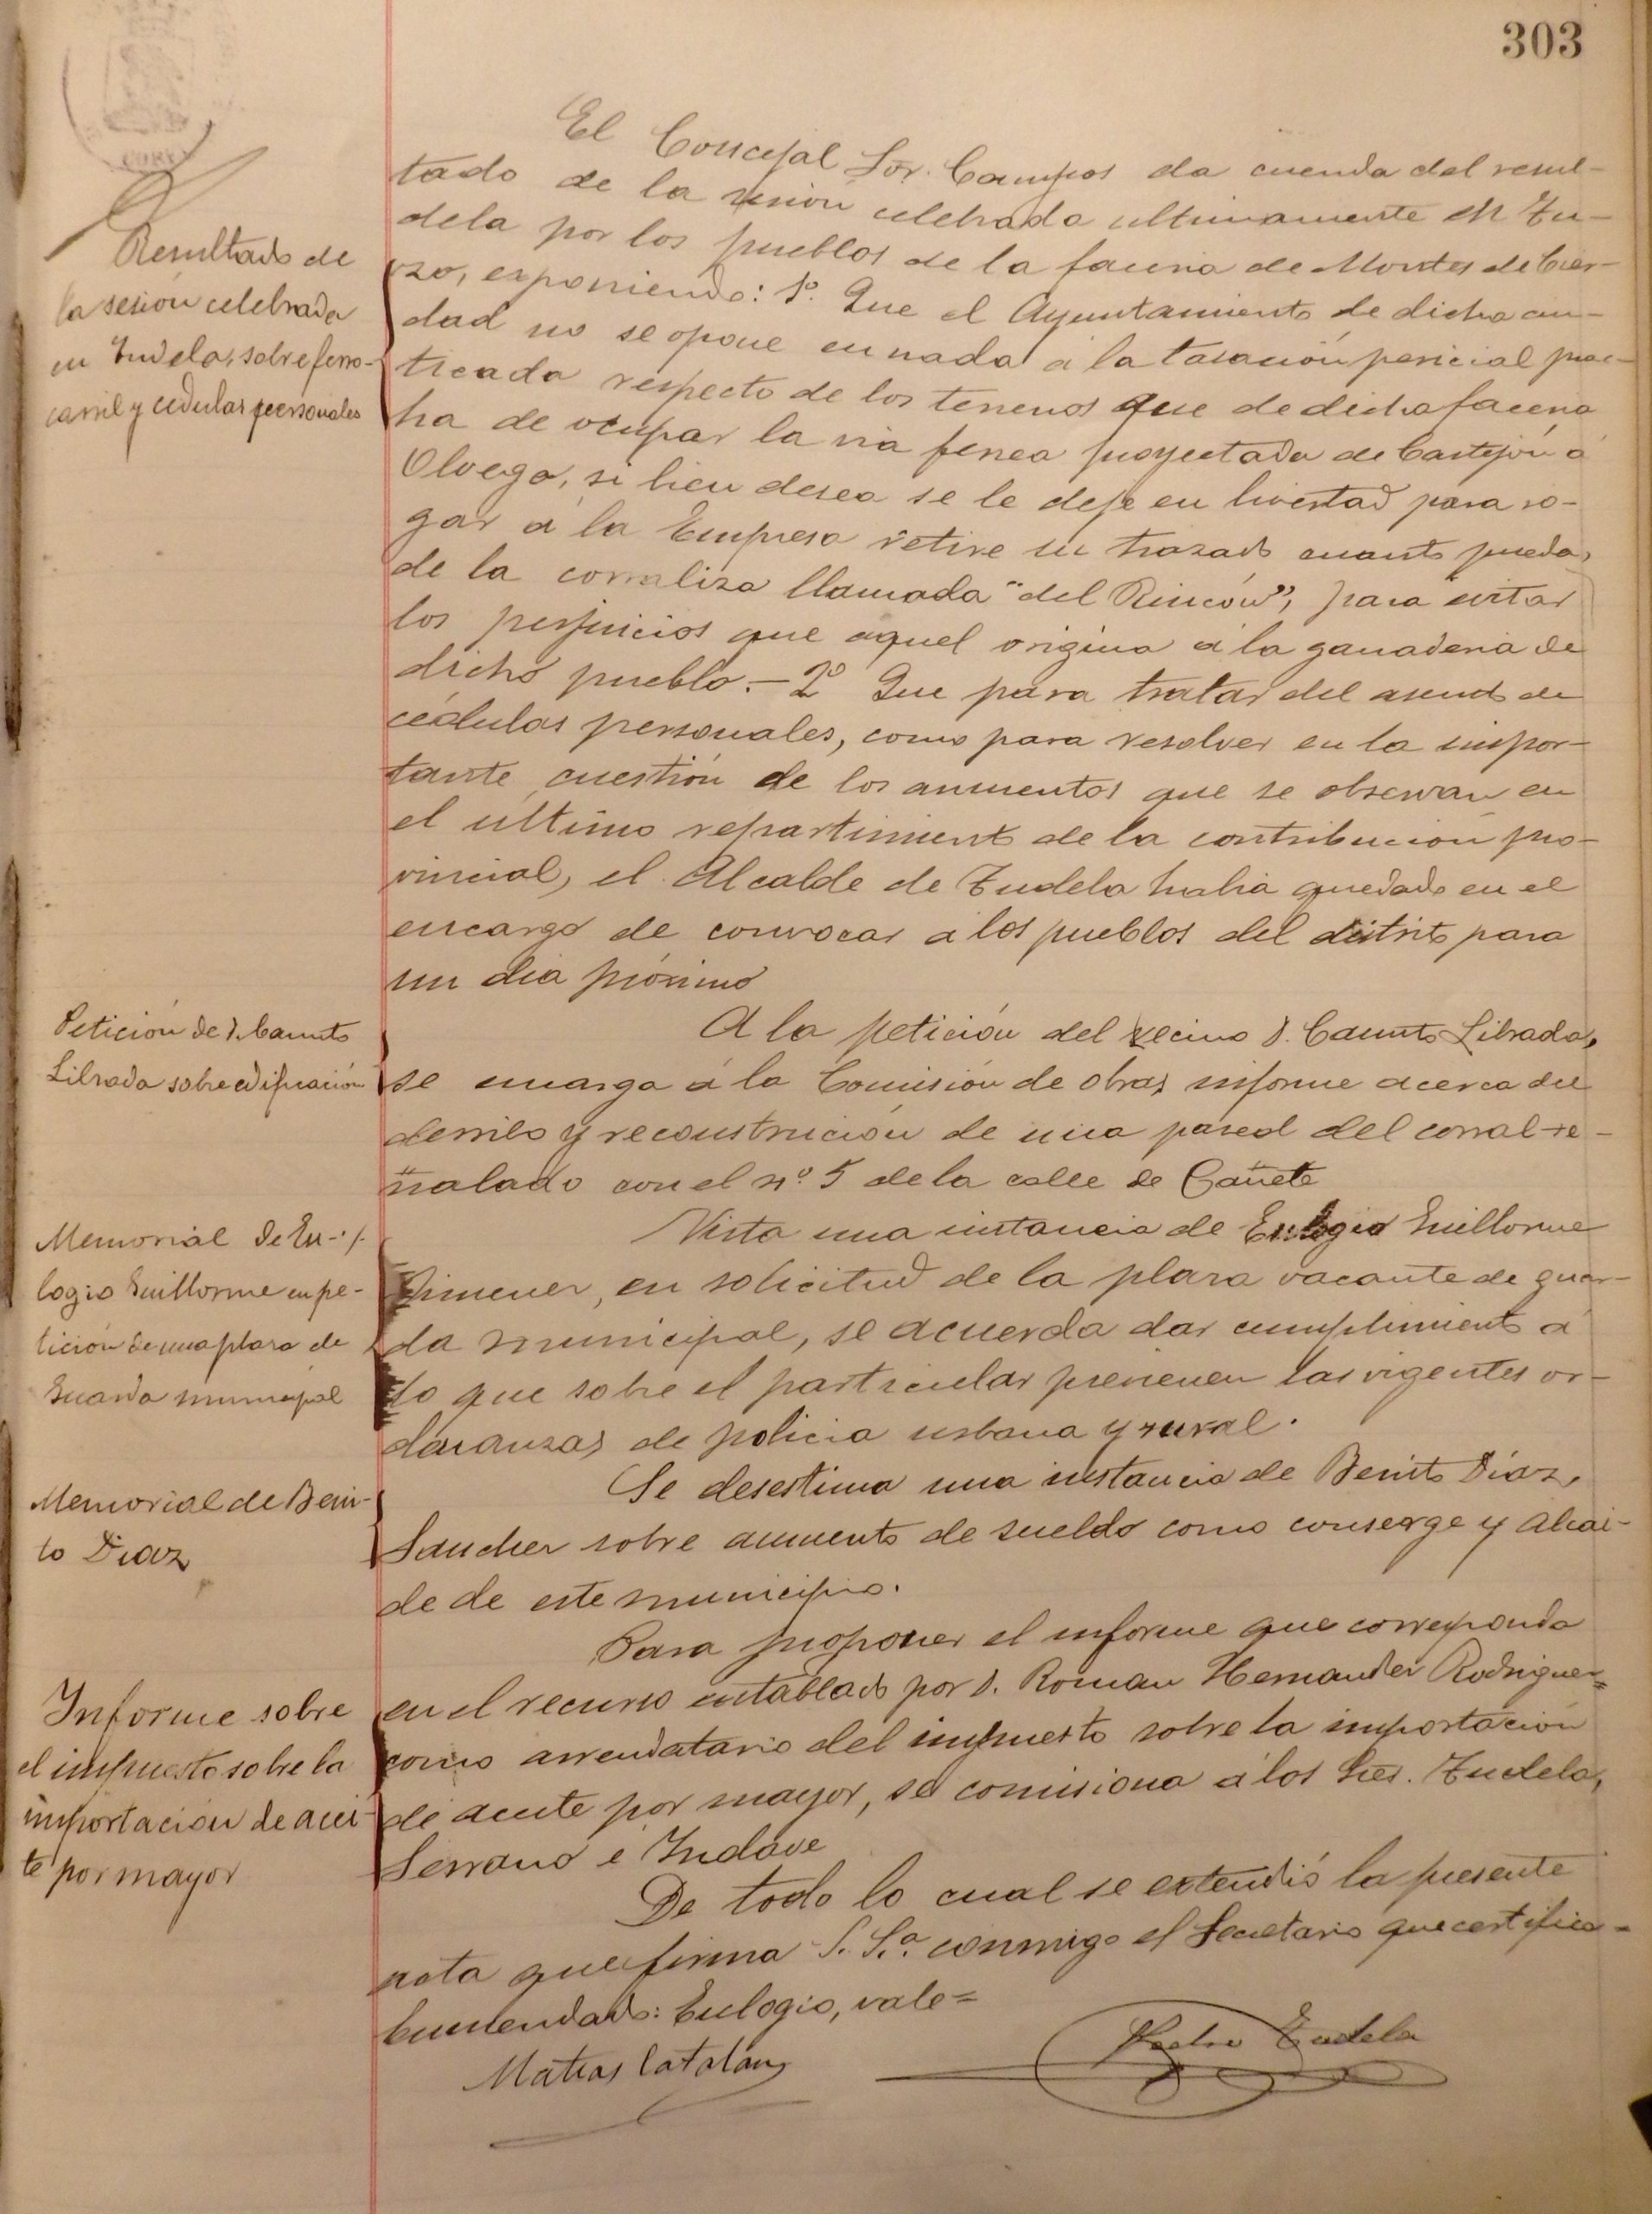 303
El Concejal Sor. Campos da cuenda del resul-
tado de la sesión celebrada ultimamente en Tu-
dela por los pueblos de la facería de Montes de Cier-
zo, exponiendo: 1º. Que el Ayuntamiento de dicha ciu-
dad no se opone en nada á la tasación pericial prac-
ticada respecto de los terrenos que de dicha facería
ha de ocupar la vía ferrea proyectada de Castejón á
Olvega, si bien desea se le deje en livertad para ro-
gar á la Empresa retire su trazado cuanto pueda,
de la corraliza llamada "del Rincón", para evitar
los perjuicios que aquel origina á la ganadería de
dicho pueblo.- 2º Que para tratar del asunto de
cédulas personales, como para resolver en la impor-
tante cuestión de los aumentos que se observan en
el último repartimiento de la contribución pro-
vincial, el Alcalde de Tudela había quedado en el
encargo de convocar á los pueblos del distrito para
un día próximo
A la petición del vecino D. Camuto Librada,
se encarga á la Comisión de obras informe acerca del
derribo y reconstrucción de una pared del corral se-
ñalado con el nº. 5 de la calle de Cañete
Vista una instancia de Eulogio Guillorme
Jimenez, en solicitud de la plaza vacante de guar-
da municipal, se acuerda dar cumplimiento á
lo que sobre el particular previenen las vigentes or-
danzas de policia urbana y rural.
Se desestima una instancia de Benito Díaz,
Sanchez sobre aumento de sueldo como conserge y alcai-
de de este municipio.
Para proponer el informe que corresponda
en el recurso entablado por D. Roman Hernandez Rodriguez=
como arrendatario del impuesto sobre la importación
de aceite por mayor, se comisiona á los Sres. Tudela,
Serrano é Yndave
De todo lo cual se extendió la presente
acta que firma S. Sª. conmigo el Secretario que certifico=
Enmendado: Eulogio, vale=
Matias Catalan
Pedro Tudela
Resultado de
la sesión celebrada
en Tudela, sobre ferro-
carril y cedulas personales
Petición de D. Camuto
Librada sobre edificación
Memorial de Eu-
logio Guillorme en pe-
tición de una plaza de
Guarda municipal
Memorial de Beni-
to Diaz
Informe sobre
el impuesto sobre la
importación de acei-
te por mayor